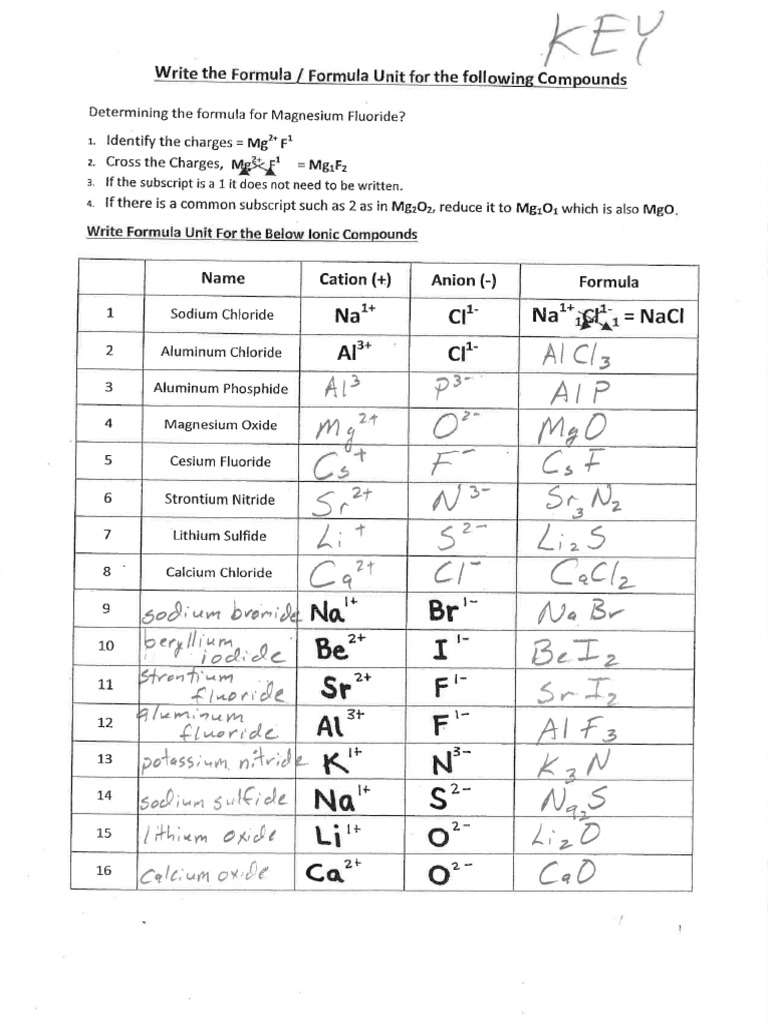 KEY
Write the Formula / Formula Unit for the following Compounds
Determining the formula for Magnesium Fluoride?
1. Identify the charges = Mg²⁺ F¹
2. Cross the Charges, Mg²⁺ F¹ = Mg₁F₂
3. If the subscript is a 1 it does not need to be written.
4. If there is a common subscript such as 2 as in Mg₂O₂, reduce it to Mg₁O₁ which is also MgO.
Write Formula Unit For the Below Ionic Compounds
Name Cation (+) Anion (-) Formula
1 Sodium Chloride Na¹⁺ Cl¹⁻ Na¹⁺₁Cl¹⁻₁ = NaCl
2 Aluminum Chloride Al³⁺ Cl¹⁻ AlCl₃
3 Aluminum Phosphide Al³ P³⁻ AlP
4 Magnesium Oxide Mg²⁺ O²⁻ MgO
5 Cesium Fluoride Cs⁺ F⁻ CsF
6 Strontium Nitride Sr²⁺ N³⁻ Sr₃N₂
7 Lithium Sulfide Li⁺ S²⁻ Li₂S
8 Calcium Chloride Ca²⁺ Cl⁻ CaCl₂
9 sodium bromide Na¹⁺ Br¹⁻ NaBr
10 beryllium iodide Be²⁺ I¹⁻ BeI₂
11 strontium fluoride Sr²⁺ F¹⁻ SrI₂
12 aluminum fluoride Al³⁺ F¹⁻ AlF₃
13 potassium nitride K¹⁺ N³⁻ K₃N
14 sodium sulfide Na¹⁺ S²⁻ Na₂S
15 lithium oxide Li¹⁺ O²⁻ Li₂O
16 calcium oxide Ca²⁺ O²⁻ CaO
1